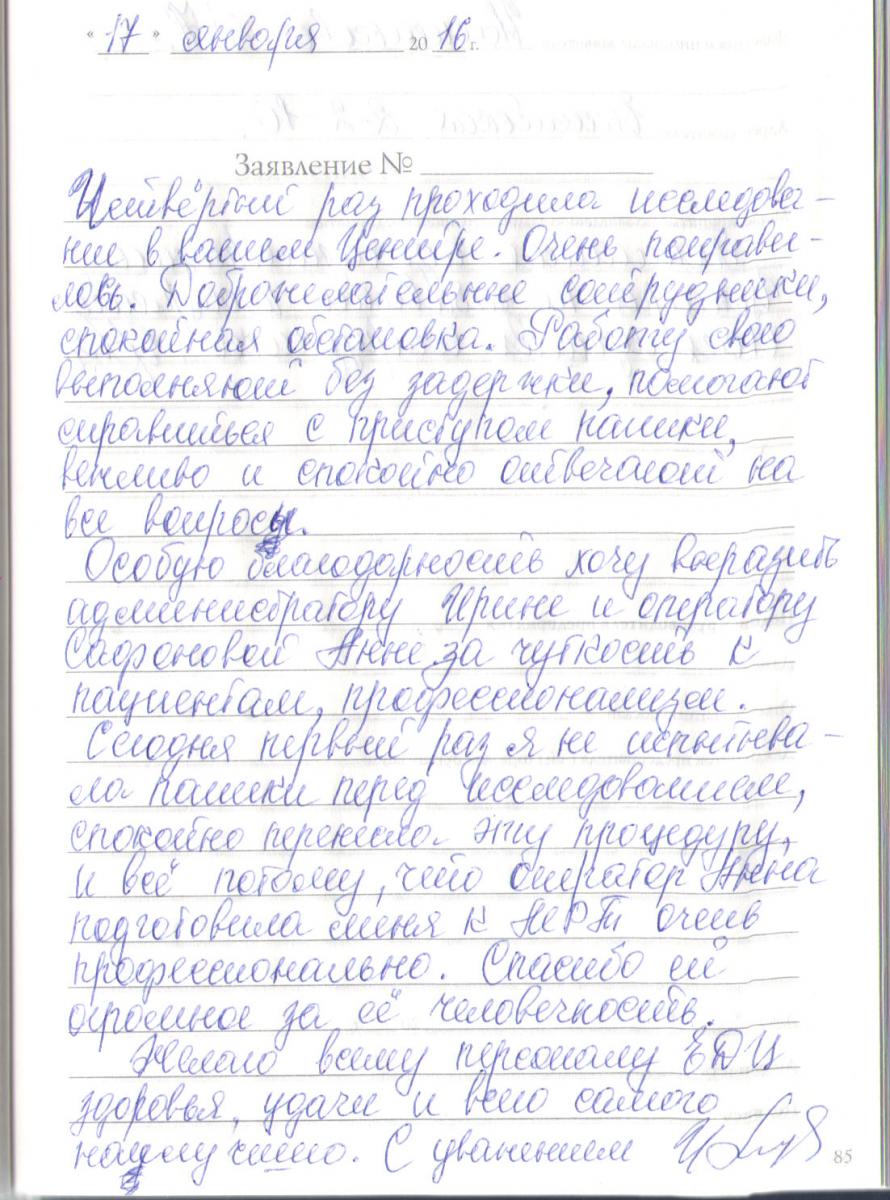 "17" января 2016 г.
Заявление №
Четвёртый раз проходила исследова-
ние в вашем Центре. Очень понрави-
лось. Доброжелательные сотрудники,
спокойная обстановка. Работу свою
выполняют без задержки, помогают
справиться с приступом паники,
вежливо и спокойно отвечают на
все вопросы.
Особую благодарность хочу выразить
администратору Ирине и оператору
Сафоновой Анне за чуткость к
пациентам, профессионализм.
Сегодня первый раз я не испытыва-
ла паники перед исследованием,
спокойно перенесла эту процедуру,
и всё потому, что оператор Анна
подготовила меня к МРТ очень
профессионально. Спасибо ей
огромное за её человечность.
Желаю всему персоналу ЕДЦ
здоровья, удачи и всего самого
наилучшего. С уважением
85